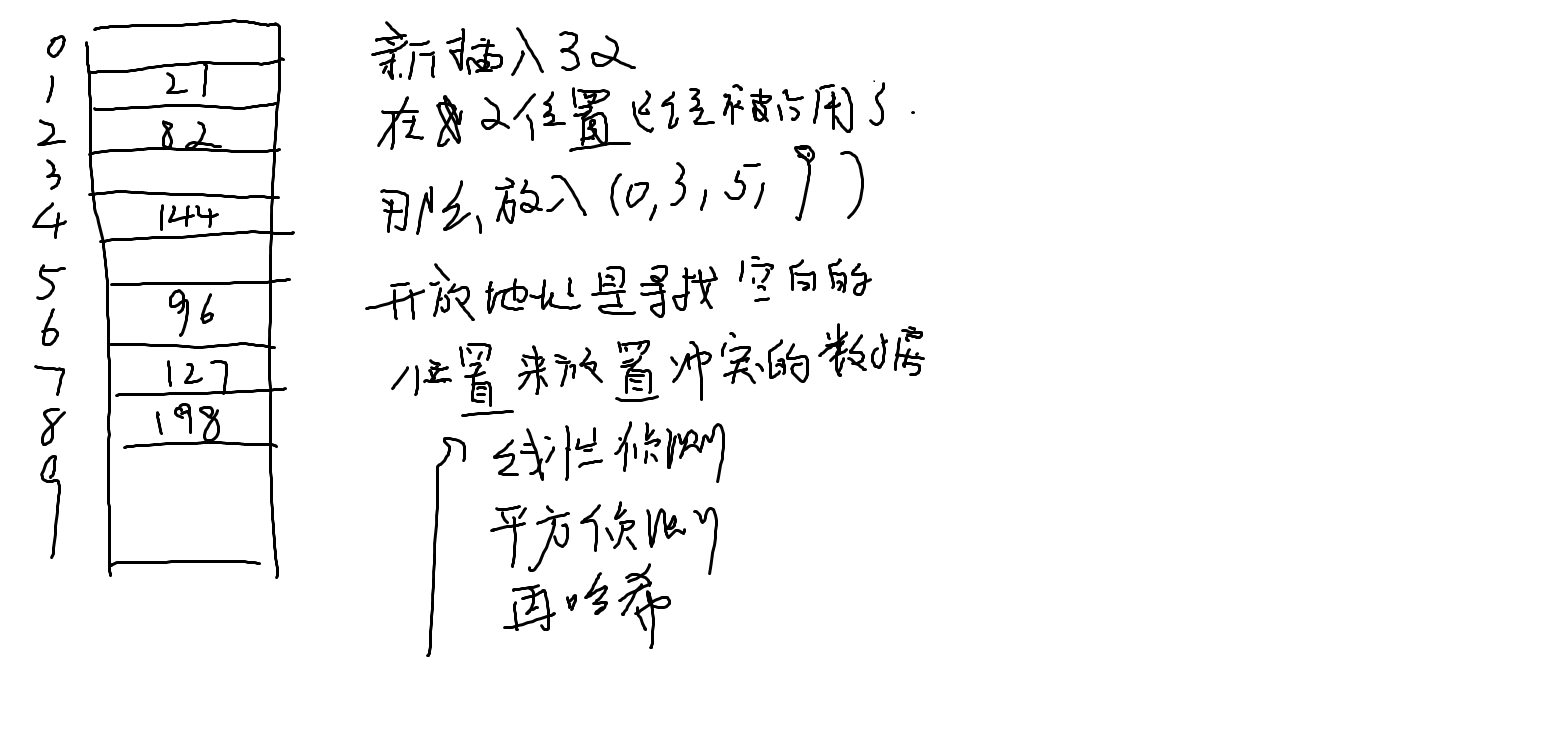 0
1 21
2 82
3
4 144
5
6 96
7 127
8 198
9
新插入32
在2位置已经被占用了.
那么,放入(0,3,5,9)
开放地址是寻找空白的
位置来放置冲突的数据
线性侦测
平方侦测
再哈希